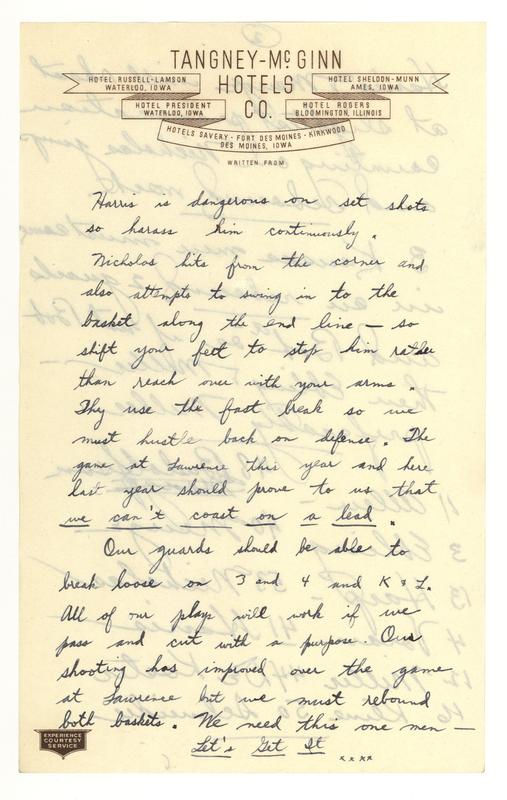 TANGNEY-McGINN
HOTELS
CO.
HOTEL RUSSELL-LAMSON
WATERLOO, IOWA
HOTEL SHELDON-MUNN
AMES, IOWA
HOTEL PRESIDENT
WATERLOO, IOWA
HOTEL ROGERS
BLOOMINGTON, ILLINOIS
HOTELS SAVERY · FORT DES MOINES · KIRKWOOD
DES MOINES, IOWA
WRITTEN FROM
Harris is dangerous on set shots
so harass him continuously.
Nicholas hits from the corner and
also attempts to swing in to the
basket along the end line — so
shift your feet to stop him rather
than reach over with your arms.
They use the fast break so we
must hustle back on defense. The
game at Lawrence this year and here
last year should prove to us that
we can't coast on a lead.
Our guards should be able to
break loose on 3 and 4 and K & L.
All of our plays will work if we
pass and cut with a purpose. Our
shooting has improved over the game
at Lawrence but we must rebound
both baskets. We need this one men —
Let's Get It
x x x x
EXPERIENCE
COURTESY
SERVICE